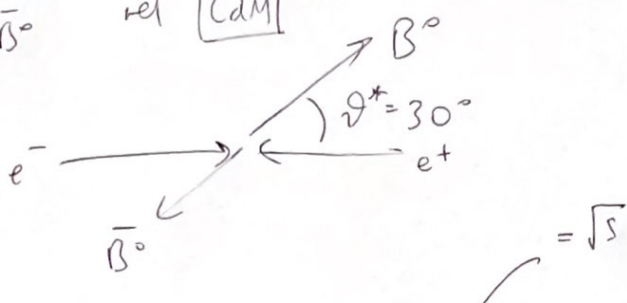 B̄° nel CdM
B°
ϑ*=30°
e⁻
e⁺
B̄°
= √s